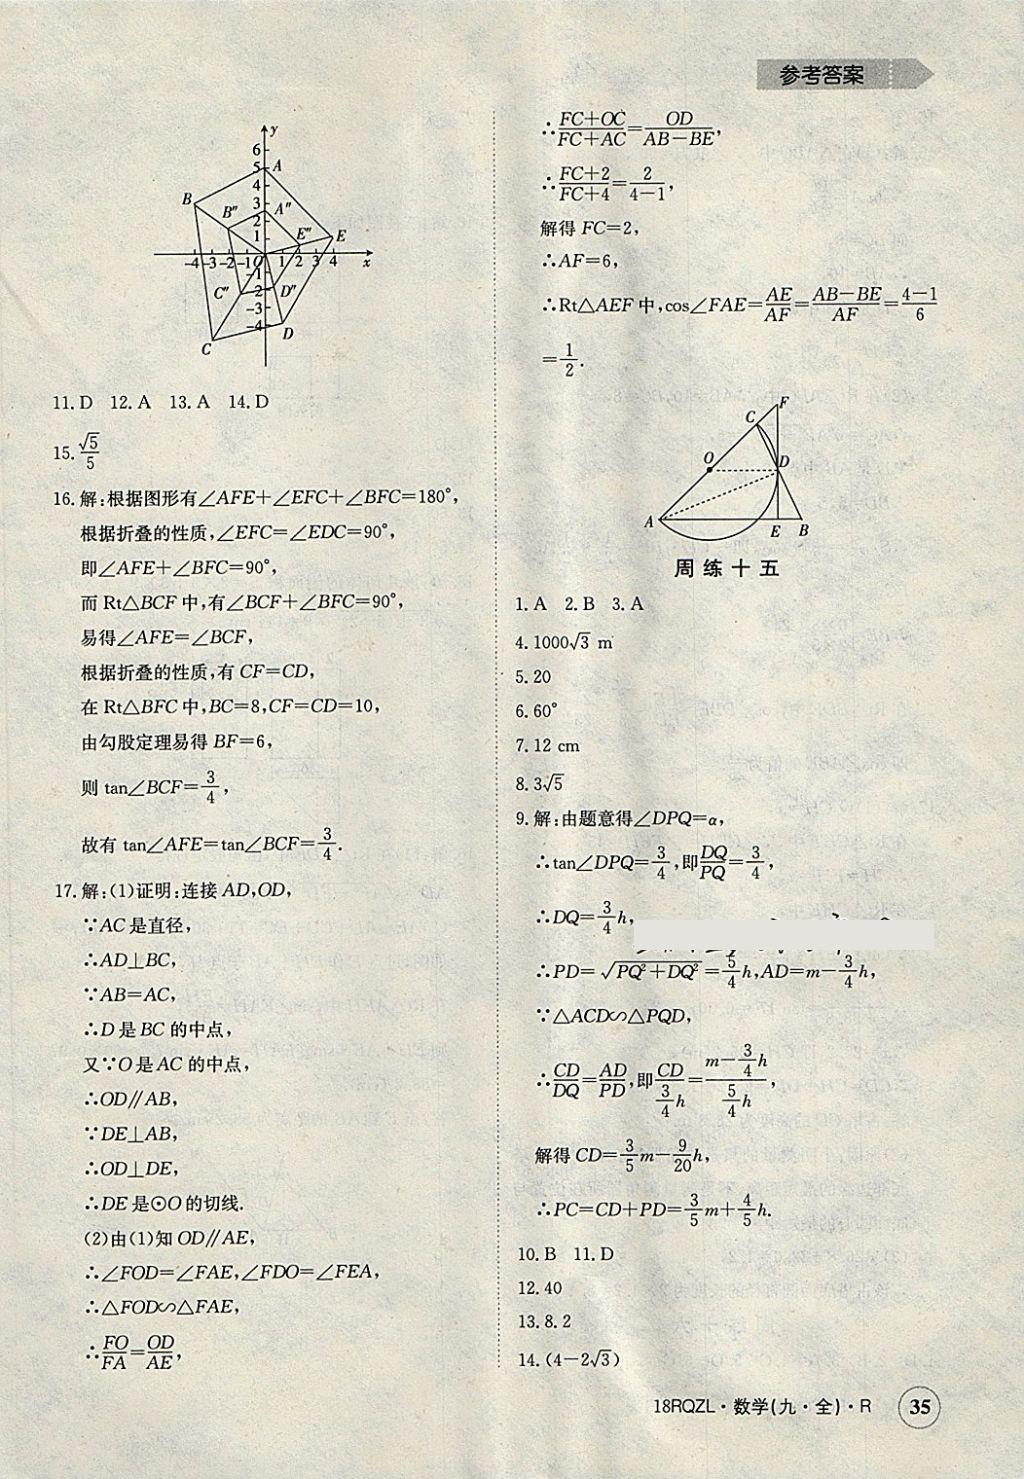 参考答案
y
6
5
4
3
2
1
-4 -3 -2 -1 O 1 2 3 4 x
-1
-2
-3
-4
A
B
B″
A″
E″
E
C″
D″
C
D
11. D 12. A 13. A 14. D
15. √5/5
16. 解:根据图形有∠AFE+∠EFC+∠BFC=180°,
根据折叠的性质,∠EFC=∠EDC=90°,
即∠AFE+∠BFC=90°,
而 Rt△BCF 中,有∠BCF+∠BFC=90°,
易得∠AFE=∠BCF,
根据折叠的性质,有 CF=CD,
在 Rt△BFC 中,BC=8,CF=CD=10,
由勾股定理易得 BF=6,
则 tan∠BCF=3/4,
故有 tan∠AFE=tan∠BCF=3/4.
17. 解:(1)证明:连接 AD,OD,
∵AC 是直径,
∴AD⊥BC,
∵AB=AC,
∴D 是 BC 的中点,
又∵O 是 AC 的中点,
∴OD∥AB,
∵DE⊥AB,
∴OD⊥DE,
∴DE 是⊙O 的切线.
(2)由(1)知 OD∥AE,
∴∠FOD=∠FAE,∠FDO=∠FEA,
∴△FOD∽△FAE,
∴FO/FA=OD/AE,
∴(FC+OC)/(FC+AC)=OD/(AB-BE),
∴(FC+2)/(FC+4)=2/(4-1),
解得 FC=2,
∴AF=6,
∴Rt△AEF 中,cos∠FAE=AE/AF=(AB-BE)/AF=(4-1)/6
=1/2.
F
C
O
D
A
E
B
周练十五
1. A 2. B 3. A
4. 1000√3 m
5. 20
6. 60°
7. 12 cm
8. 3√5
9. 解:由题意得∠DPQ=α,
∴tan∠DPQ=3/4,即DQ/PQ=3/4,
∴DQ=3/4h,
∴PD=√(PQ²+DQ²)=5/4h,AD=m-3/4h,
∵△ACD∽△PQD,
∴CD/DQ=AD/PD,即CD/(3/4h)=(m-3/4h)/(5/4h),
解得 CD=3/5m-9/20h,
∴PC=CD+PD=3/5m+4/5h.
10. B 11. D
12. 40
13. 8.2
14. (4-2√3)
18RQZL·数学(九·全)·R 35